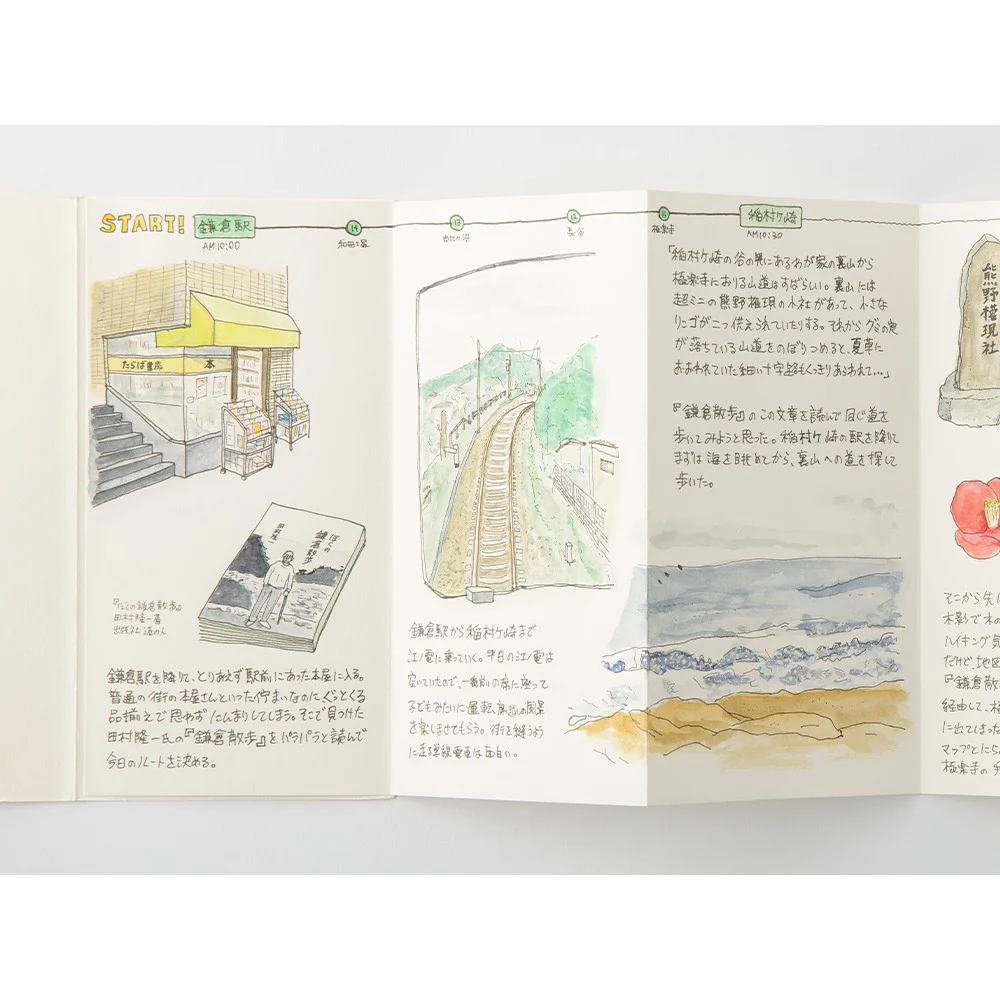 START! 鎌倉駅
AM10:00
14
和田塚
13
由比ヶ浜
12
長谷
11
極楽寺
稲村ヶ崎
AM10:30
たらば書房 本
ぼくの
鎌倉散歩
田村隆一
『ぼくの鎌倉散歩』
田村隆一著
出版社 港の人
鎌倉駅を降りて、とりあえず駅前にあった本屋に入る。
普通の街の本屋さんといった佇まいなのにぐっとくる
品揃えで思わずにんまりしてしまう。そこで見つけた
田村隆一氏の『鎌倉散歩』をパラパラと読んで
今日のルートを決める。
鎌倉駅から稲村ヶ崎まで
江ノ電に乗っていく。平日の江ノ電は
空いていたので、一番前の席に座って
子どもみたいに運転席越しの風景
を楽しませてもらう。街を縫うよう
に走る単線電車は面白い。
「稲村ヶ崎の谷の奥にあるわが家の裏山から
極楽寺におりる山道はすばらしい。裏山には
超ミニの熊野権現の小社があって、小さな
リンゴが二つ供えられていたりする。それからグミの実
が落ちている山道をのぼりつめると、夏草に
おおわれていた細い十字路もくっきりあらわれて…」
『鎌倉散歩』のこの文章を読んで同じ道を
歩いてみようと思った。稲村ヶ崎の駅を降りて
まずは海を眺めてから、裏山への道を探して
歩いた。
熊野権現社
そこから先は
木影で木の
ハイキング気
だけど地図
『鎌倉
経由して、極
に出てしまった
マップとにら
極楽寺の